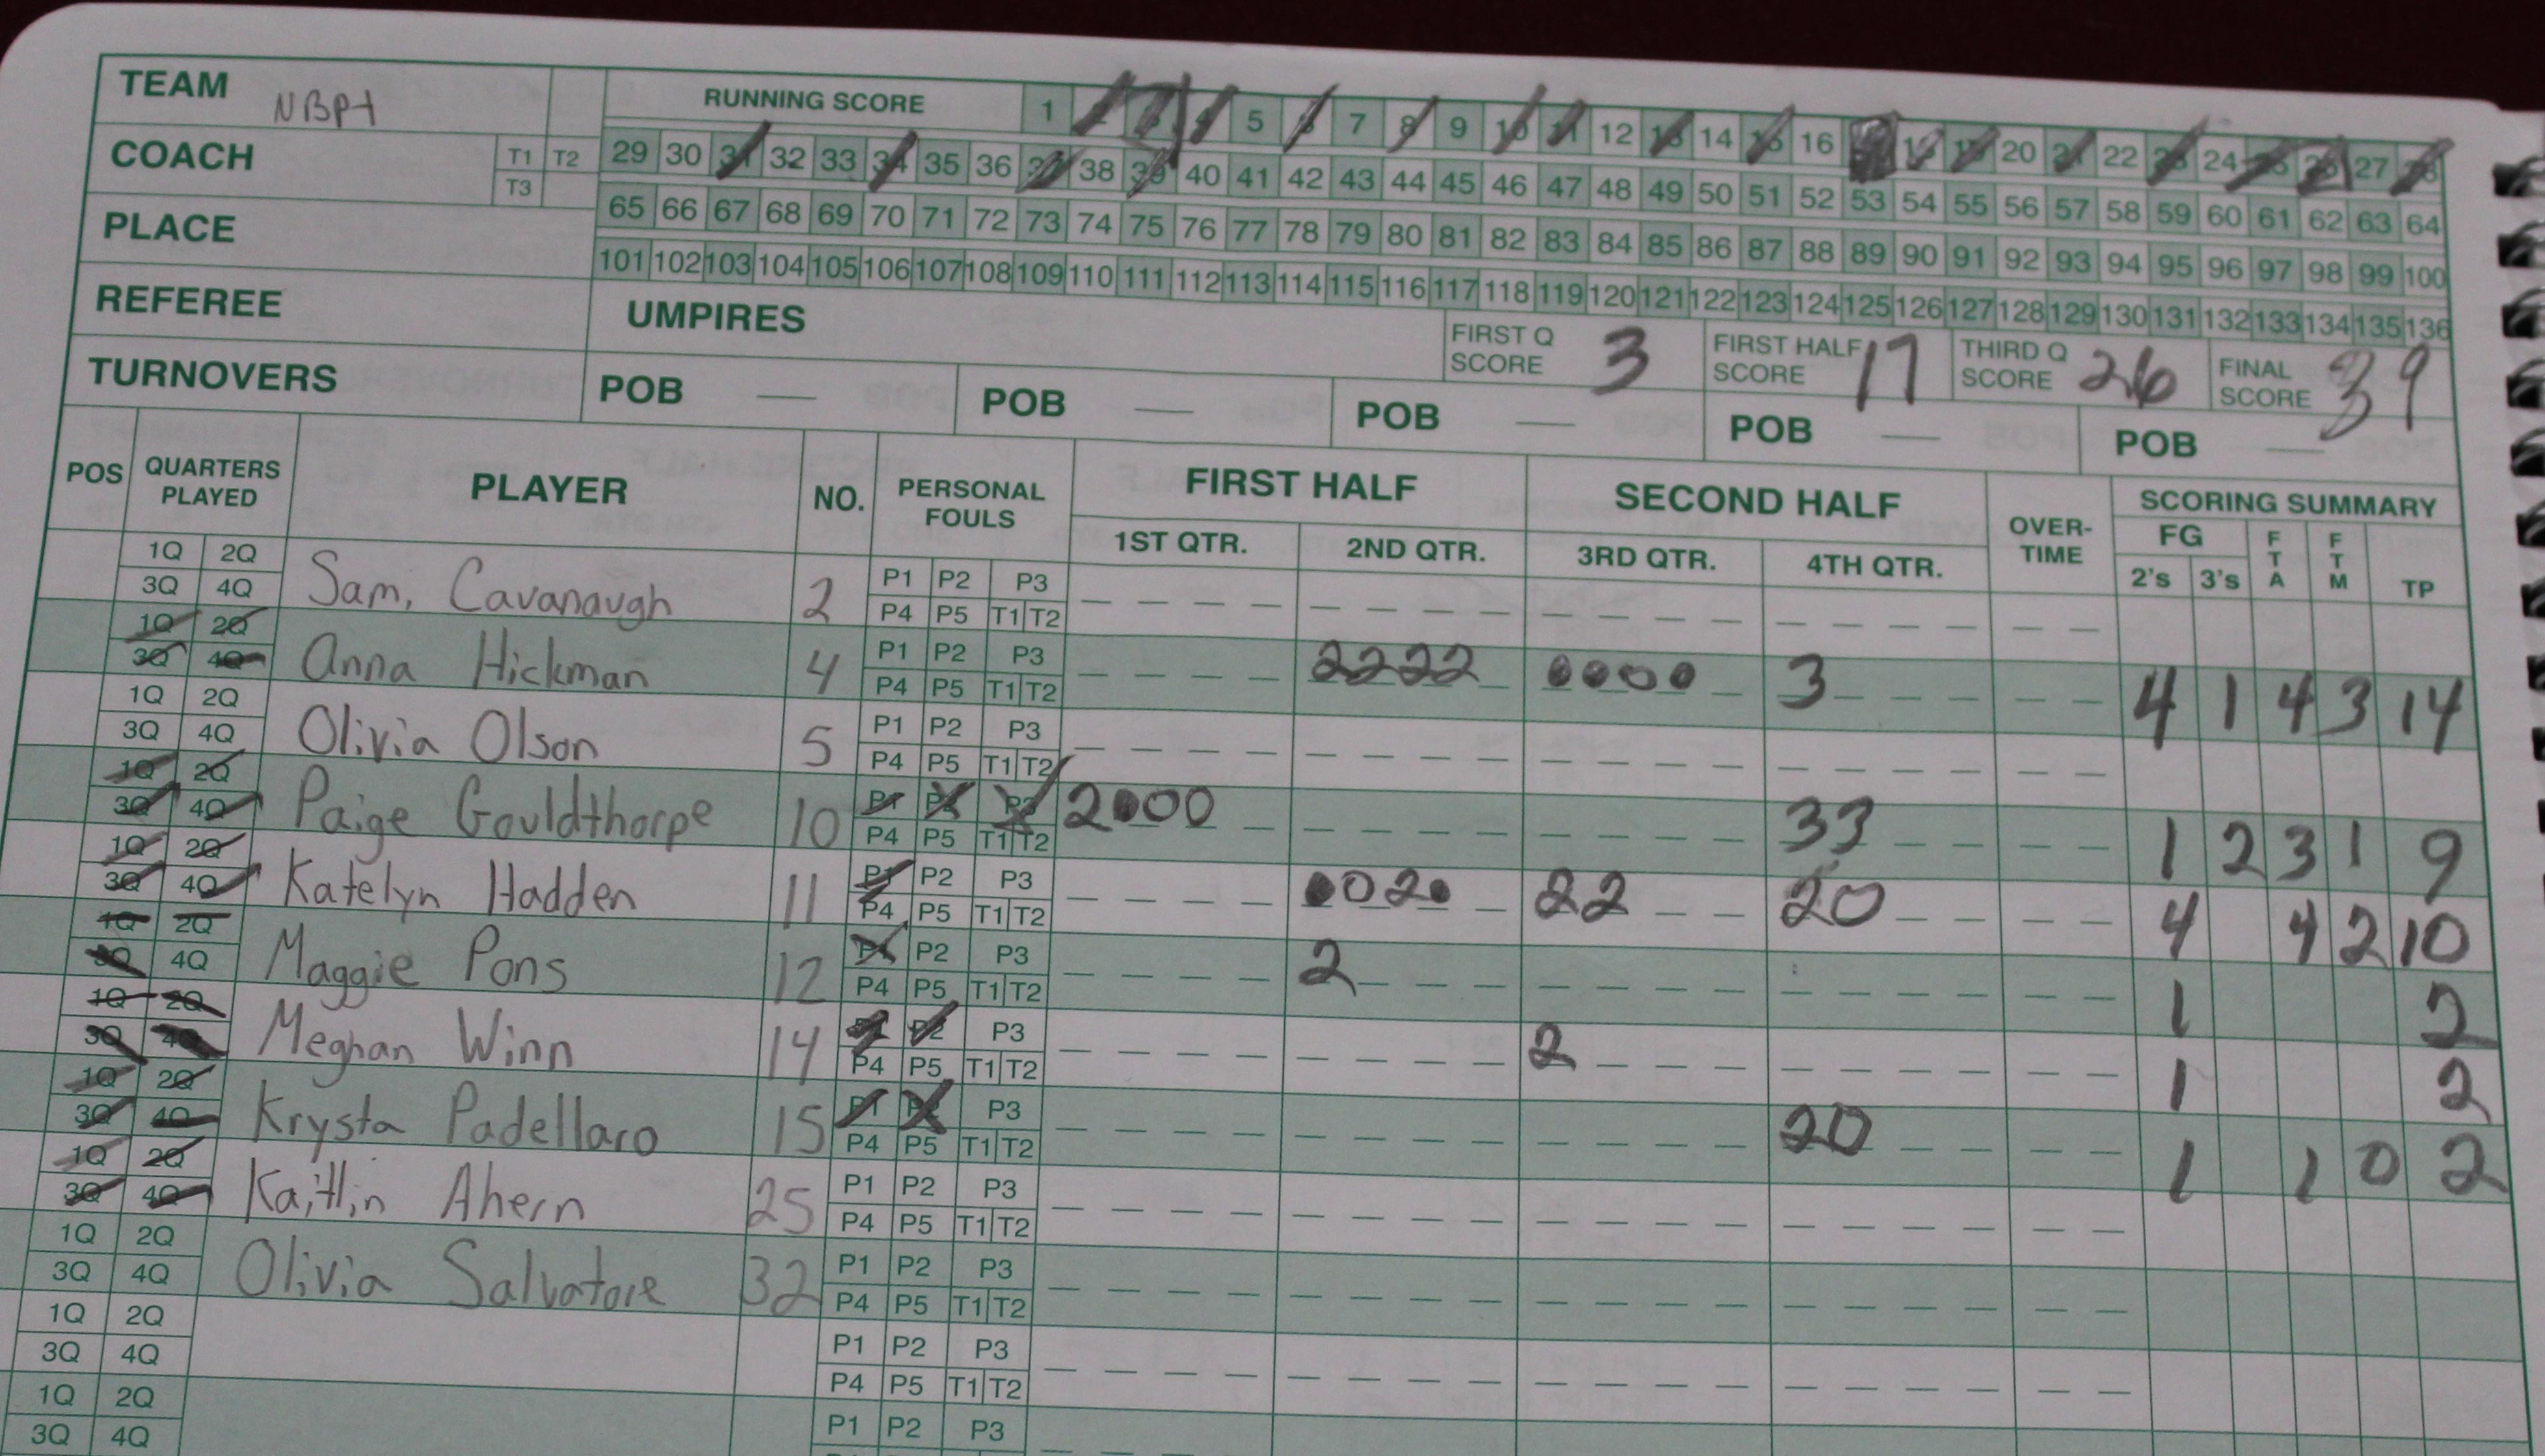 TEAM NBPt
RUNNING SCORE 1 2 3 4 5 6 7 8 9 10 11 12 13 14 15 16 17 18 19 20 21 22 23 24 25 26 27 28
COACH T1 T2 T3
29 30 31 32 33 34 35 36 37 38 39 40 41 42 43 44 45 46 47 48 49 50 51 52 53 54 55 56 57 58 59 60 61 62 63 64
PLACE
65 66 67 68 69 70 71 72 73 74 75 76 77 78 79 80 81 82 83 84 85 86 87 88 89 90 91 92 93 94 95 96 97 98 99 100
101 102 103 104 105 106 107 108 109 110 111 112 113 114 115 116 117 118 119 120 121 122 123 124 125 126 127 128 129 130 131 132 133 134 135 136
REFEREE UMPIRES
FIRST Q SCORE 3 FIRST HALF SCORE 17 THIRD Q SCORE 26 FINAL SCORE 39
TURNOVERS POB — POB — POB — POB — POB —
POS QUARTERS PLAYED PLAYER NO. PERSONAL FOULS FIRST HALF SECOND HALF OVER-TIME SCORING SUMMARY
1ST QTR. 2ND QTR. 3RD QTR. 4TH QTR. FG 2's 3's FTA FTM TP
1Q 2Q P1 P2 P3
3Q 4Q Sam. Cavanaugh 2 P4 P5 T1 T2
1Q 2Q P1 P2 P3
3Q 4Q Anna Hickman 4 P4 P5 T1 T2 2222 0000 3 4 1 4 3 14
1Q 2Q P1 P2 P3
3Q 4Q Olivia Olson 5 P4 P5 T1 T2
1Q 2Q P1 P2 P3
3Q 4Q Paige Gouldthorpe 10 P4 P5 T1 T2 2000 33 1 2 3 1 9
1Q 2Q P1 P2 P3
3Q 4Q Katelyn Hadden 11 P4 P5 T1 T2 0020 22 20 4 4 2 10
1Q 2Q P1 P2 P3
3Q 4Q Maggie Pons 12 P4 P5 T1 T2 2 1 2
1Q 2Q P1 P2 P3
3Q 4Q Meghan Winn 14 P4 P5 T1 T2 2 1 2
1Q 2Q P1 P2 P3
3Q 4Q Krysta Padellaro 15 P4 P5 T1 T2 20 1 1 0 2
1Q 2Q P1 P2 P3
3Q 4Q Kaitlin Ahern 25 P4 P5 T1 T2
1Q 2Q P1 P2 P3
3Q 4Q Olivia Salvatore 32 P4 P5 T1 T2
1Q 2Q P1 P2 P3
3Q 4Q P4 P5 T1 T2
1Q 2Q P1 P2 P3
3Q 4Q